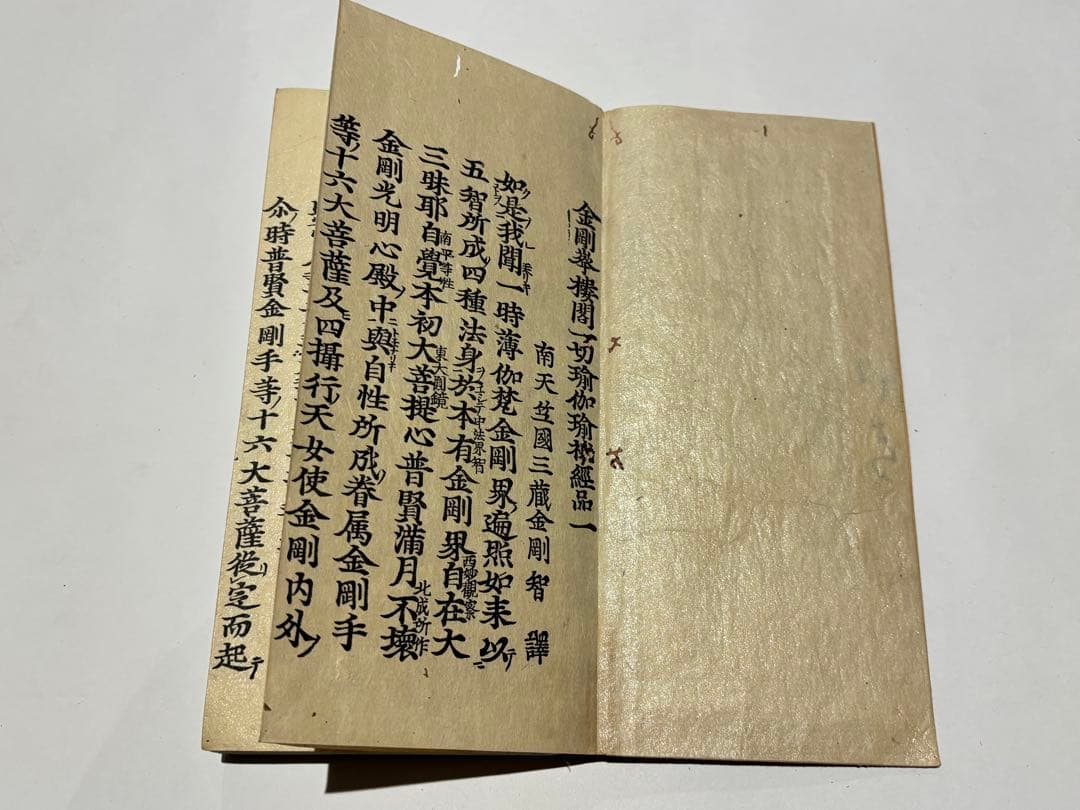 金剛峯樓閣一切瑜伽瑜祇經品一
南天竺國三藏金剛智 譯
如是我聞一時薄伽梵金剛界遍照如来以
五智所成四種法身於本有金剛界自在大
三昧耶自覺本初大菩提心普賢滿月不壞
金剛光明心殿中與自性所成眷属金剛手
等十六大菩薩及四攝行天女使金剛内外
尒時普賢金剛手等十六大菩薩從定而起
中法界智
西妙觀察
南平等性
東大圓鏡
北成所作